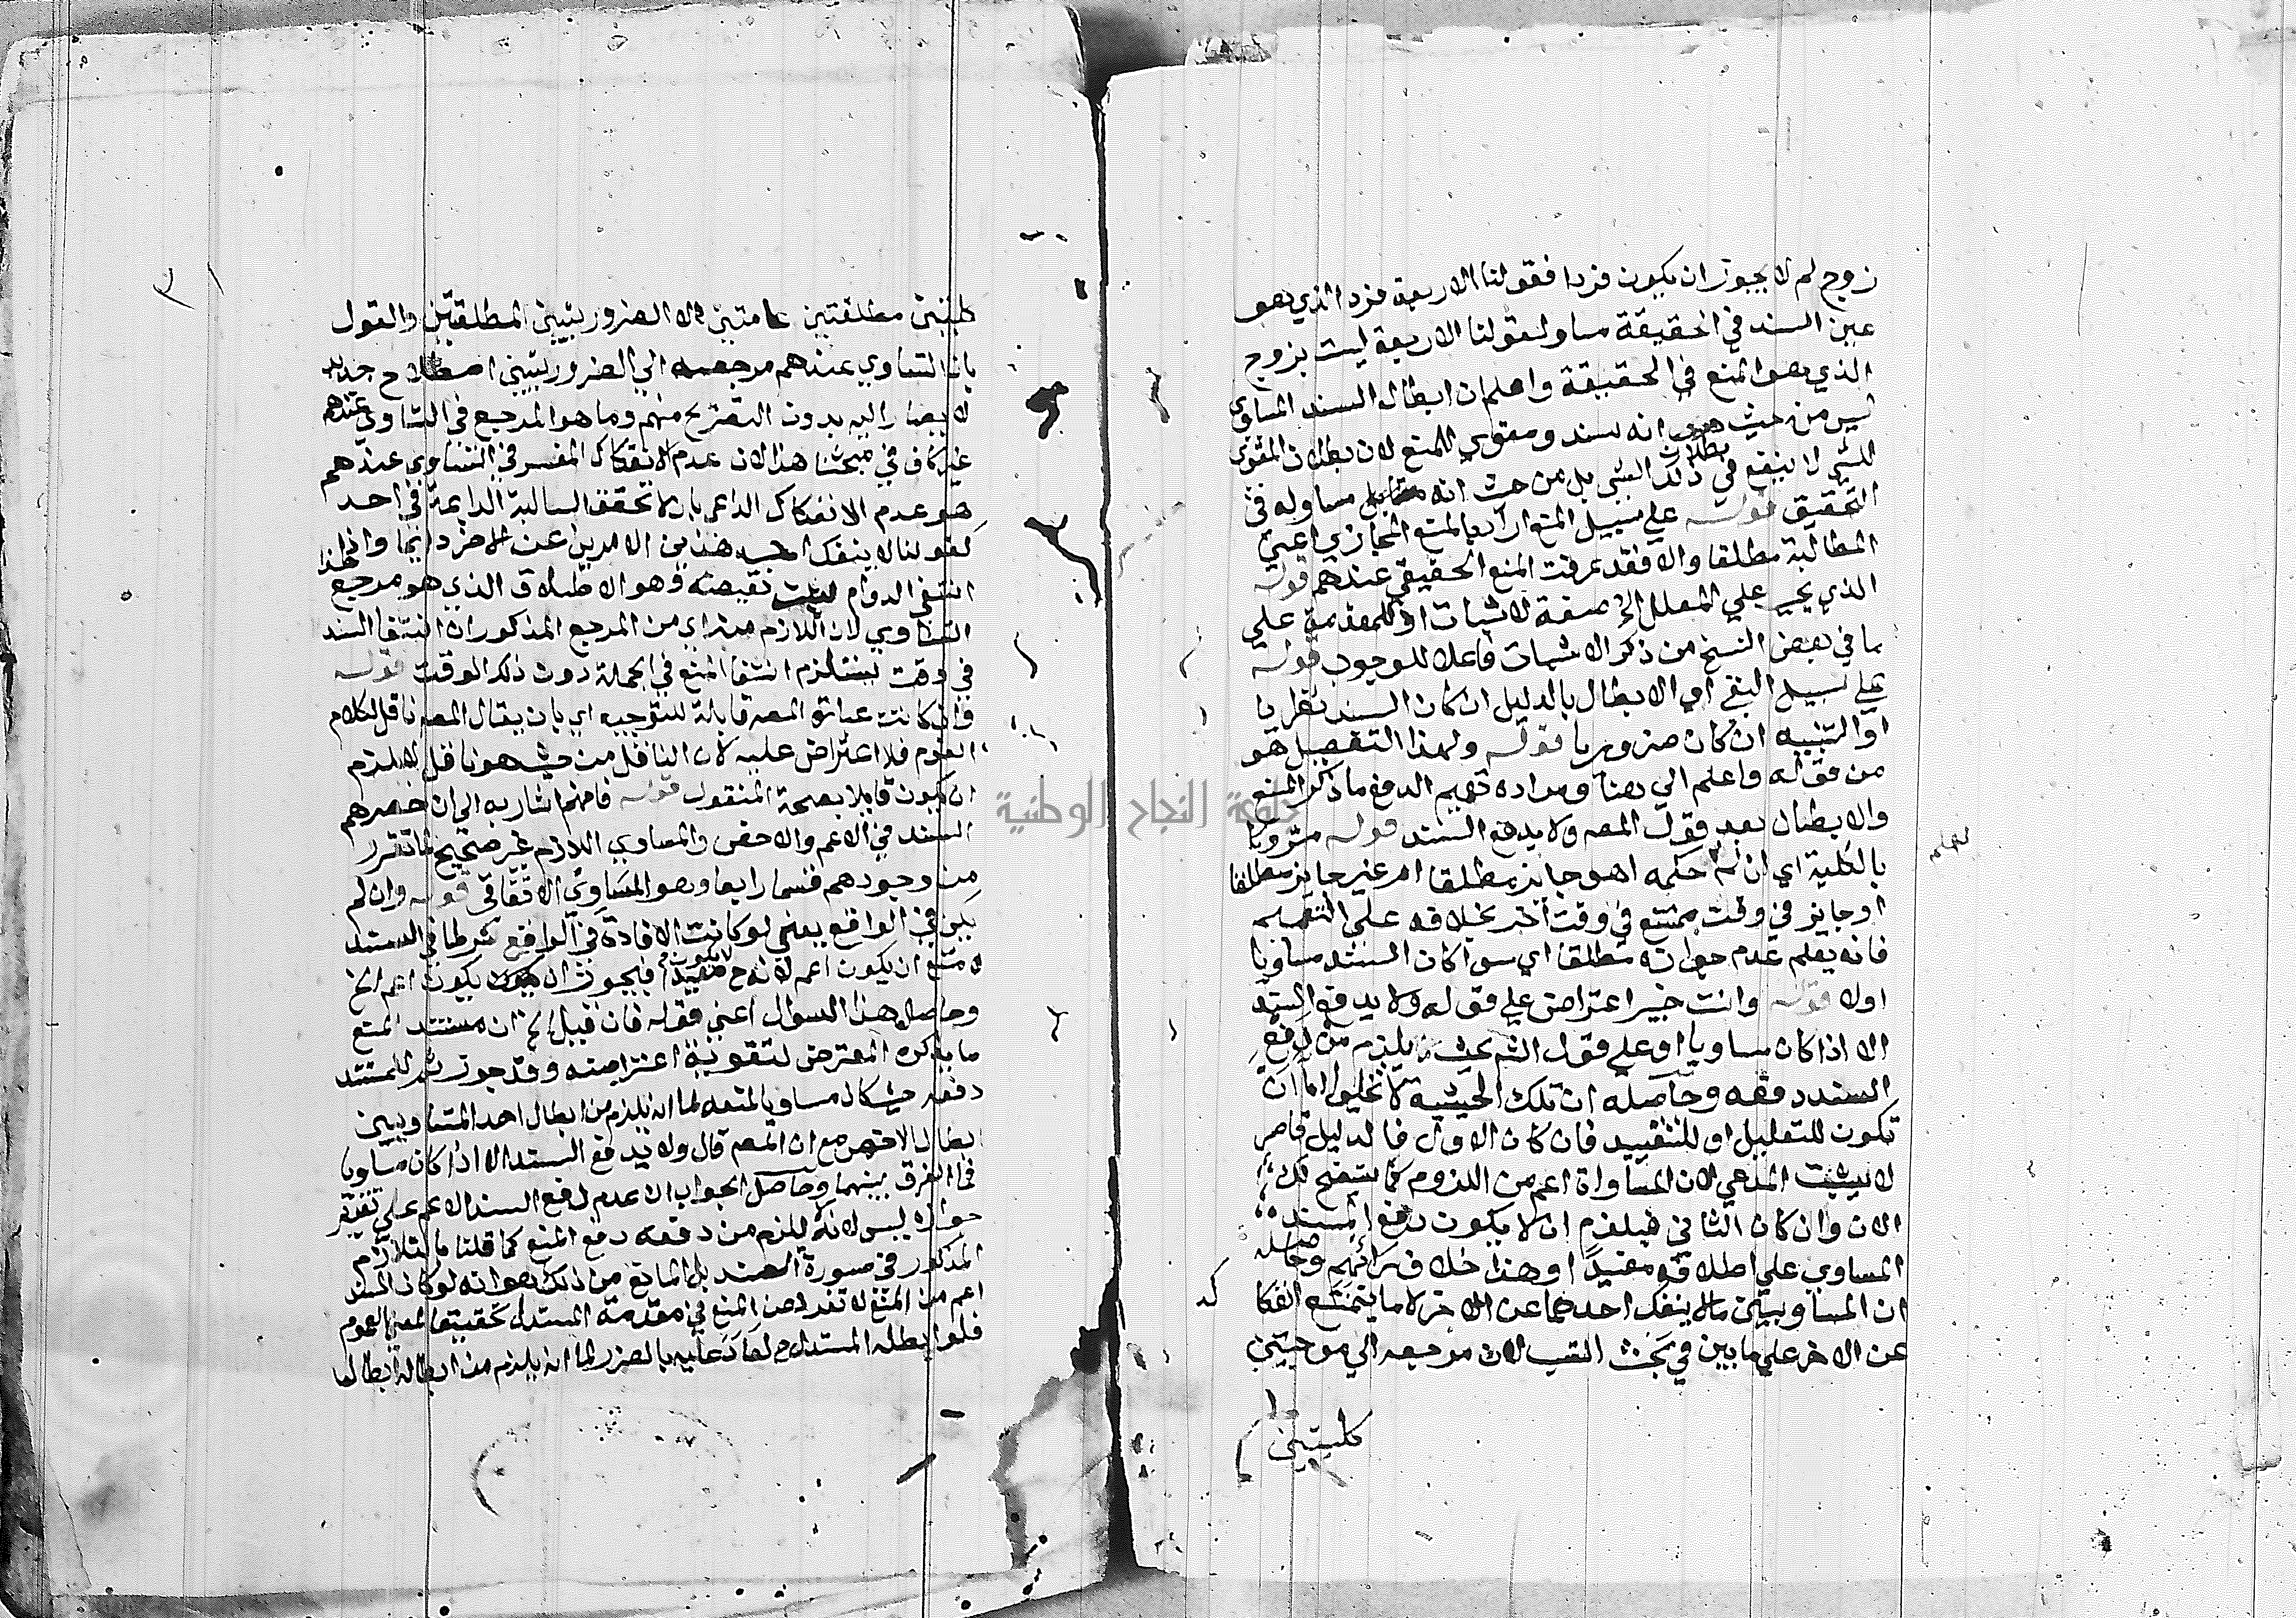 زوج لم لا يجوز ان يكون فردا فقولنا الاربعة فرد الذي هو
عين السند في الحقيقة مساو لقولنا الاربعة ليست بزوج
الذي هو المنع في الحقيقة واعلم ان ابطال السند المساوي
ليس من حيث انه سند ومقوي للمنع لان بطلان المقوي
للشي لا ينفع في بطلان ذلك الشي بل من حيث انه مساو له في
التحقيق قوله علي سبيل المنع اراد بالمنع المجازي اعني
المطالبة مطلقا والا فقد عرفت المنع الحقيقي عندهم قوله
الذي يجب علي المعلل الخ صفة لاثبات او للمقدمة علي
ما في بعض النسخ من ذكر الاثبات فاعلا للوجوب قوله
علي سبيل النفي اي الابطال بالدليل ان كان السند نظريا
او التنبيه ان كان ضروريا قوله ولهذا التفصيل هو
من قوله واعلم الي هنا ومراده تعميم الدفع ما ذكر المنع
والابطال بعد قول المصه ولا يدفع السند قوله متروكا
بالكلية اي ان حكمه اهو جايز مطلقا ام غير جايز مطلقا
او جايز في وقت ممتنع في وقت اخر بخلافه علي التعميم
فانه يعلم عدم جوازه مطلقا اي سوا كان السند مساويا
اولا قوله وانت خبير اعتراض علي قوله ولا يدفع السند
الا اذا كان مساويا او علي قول الشم بحيث يلزم من دفع
السند دفعه وحاصله ان تلك الحيثية لا تخلوا اما ان
تكون للتعليل او للتقييد فان كان الاول فالدليل قاصر
لا يثبت المدعي لان المساواة اعم من اللزوم كما يتضح لك
الان وان كان الثاني فيلزم ان لا يكون دفع السند
المساوي علي اطلاقه مفيدا وهذا خلاف رائهم وحاصله
ان المساويين ما لا ينفك احدهما عن الاخر لا ما يمتنع انفكا
عن الاخر علي ما بين في بحث النسب لان مرجعه الي موجبتين
كليتين
كليتين مطلقتين عامتين لا الضروريتين المطلقتين والقول
بان التساوي عندهم مرجعه الي الضروريتين اصطلاح جديد
لا يصار اليه بدون التصريح منهم وما هو المرجع في التساوي عندهم
غير كاف في مبحثنا هذا لان عدم الانفكاك المفسر في التساوي عندهم
هو عدم الانفكاك الداعي بان لا تحقق السالبة الدايمة في احد
كقولنا لا ينفك احد هذين الامرين عن الاخر دايما واذا
انتفي الدوام ثبت نقيضه وهو الاطلاق الذي هو مرجع
التساوي لان اللازم من اي من المرجع المذكور ان انتفا السند
في وقت يستلزم انتفا المنع في الجملة دون ذلك الوقت قوله
وان كانت عبارة المصه قابلة للتوجيه اي بان يقال المصه ناقل لكلام
القوم فلا اعتراض عليه لان الناقل من حيث هو ناقل لا يلزم
ان يكون قايلا بصحة المنقول قوله فافهم اشار به الي ان حصرهم
السند في الاعم والاخص والمساوي اللازم غير صحيح لما تقرر
من وجودهم قسما رابعا وهو المساوي الاتفاقي قوله وان لم
يكن في الواقع يعني لو كانت الافادة في الواقع شرطا في السند
لامتنع ان يكون اعم لانه ح لا يكون مفيدا فيجوز ان يكون اعم الخ
وحاصل هذا السؤال اعني قوله فان قيل الخ ان مستند المنع
ما يذكره المعترض لتقوية اعتراضه وقد جوز للمستند
دفعه حيث كان مساويا لمنعه لما انه يلزم من ابطال احد المتساويين
ابطال الاخر مع ان المصه قال ولا يدفع السند الا اذا كان مساويا
فما الفرق بينهما وحاصل الجواب ان عدم دفع السند الاعم علي تقدير
جوازه ليس لانه لا يلزم من دفعه دفع المنع كما قلنا بالتلازم
المذكور في صورة السند بل المانع من ذلك هو انه لو كان السند
اعم من المنع لا تعرض المنع في مقدمة المستدل تحقيقا لمعني العموم
فلو ابطله المستدل ح لعاد عليه بالضرر لما انه يلزم من ابطاله ابطال
جامعة النجاح الوطنية